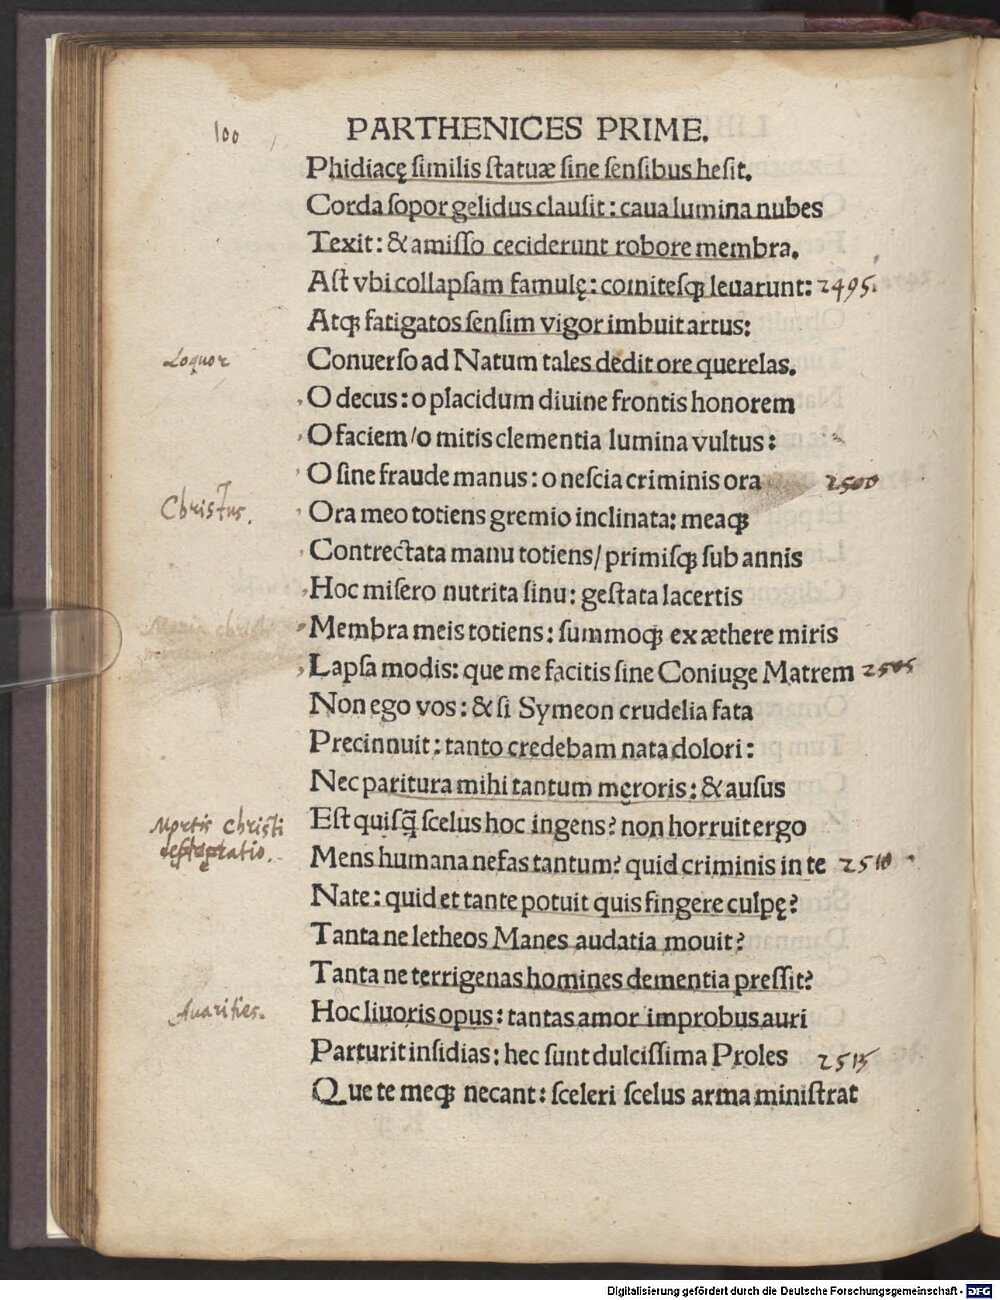 100
PARTHENICES PRIME.
Phidiacę ſimilis ſtatuæ ſine ſenſibus heſit.
Corda ſopor gelidus clauſit: caua lumina nubes
Texit: & amiſſo ceciderunt robore membra.
Aſt vbi collapſam famulę: comiteſqꝫ leuarunt: 2495.
Atqꝫ fatigatos ſenſim vigor imbuit artus:
Loquor
Conuerſo ad Natum tales dedit ore querelas.
O decus: o placidum diuine frontis honorem
O faciem/o mitis clementia lumina vultus:
O ſine fraude manus: o neſcia criminis ora 2500
Christus.
Ora meo totiens gremio inclinata: meaqꝫ
Contrectata manu totiens/primiſqꝫ ſub annis
Hoc miſero nutrita ſinu: geſtata lacertis
Maria Christi
Membra meis totiens: ſummoqꝫ ex æthere miris
Lapſa modis: que me facitis ſine Coniuge Matrem 2505
Non ego vos: & ſi Symeon crudelia fata
Precinnuit: tanto credebam nata dolori:
Nec paritura mihi tantum męroris: & auſus
Mortis Christi
Eſt quiſq̃ ſcelus hoc ingens? non horruit ergo
Mens humana nefas tantum? quid criminis in te 2510
Nate: quid et tante potuit quis fingere culpę?
Tanta ne letheos Manes audatia mouit?
Tanta ne terrigenas homines dementia preſſit?
Avarities.
Hoc liuoris opus: tantas amor improbus auri
Parturit inſidias: hec ſunt dulciſſima Proles 2515
Que te meqꝫ necant: ſceleri ſcelus arma miniſtrat
Digitalisierung gefördert durch die Deutsche Forschungsgemeinschaft - DFG